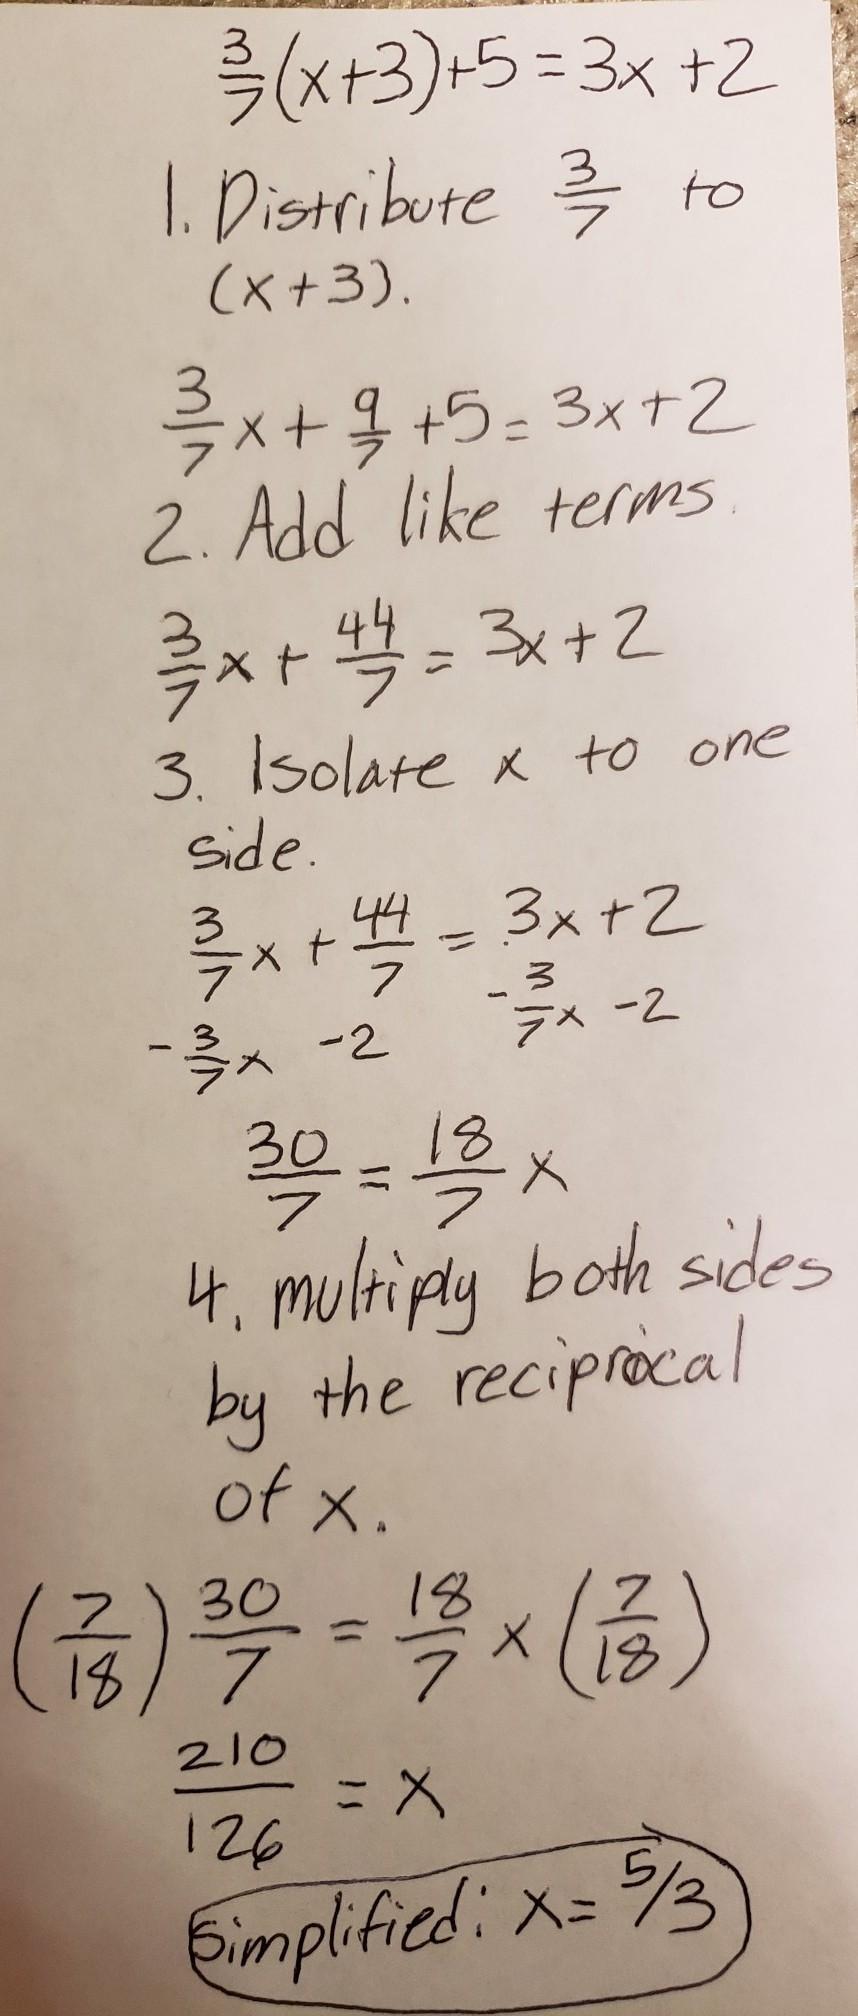 3/7(x+3)+5=3x+2
1. Distribute 3/7 to
(x+3).
3/7x+9/7+5=3x+2
2. Add like terms.
3/7x+44/7=3x+2
3. Isolate x to one
side.
3/7x+44/7=3x+2
-3/7x -2 -3/7x -2
30/7=18/7x
4. multiply both sides
by the reciprocal
of x.
(7/18)30/7=18/7x(7/18)
210/126=x
Simplified: x=5/3